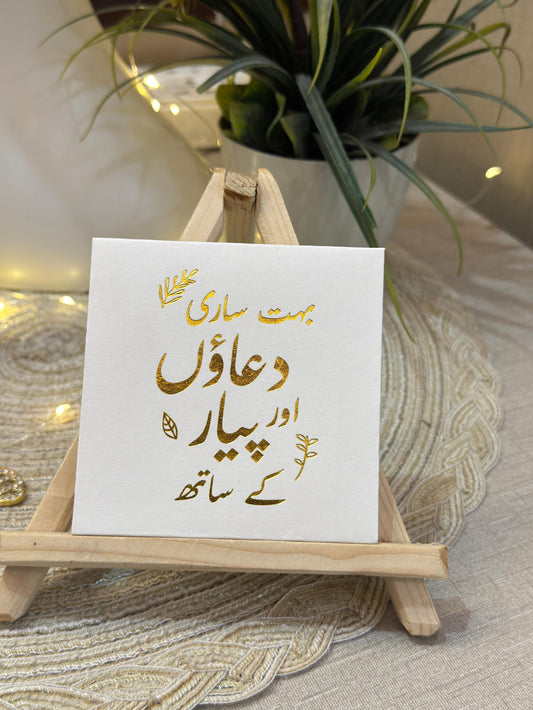 بہت ساری
دعاؤں
اور پیار
کے ساتھ